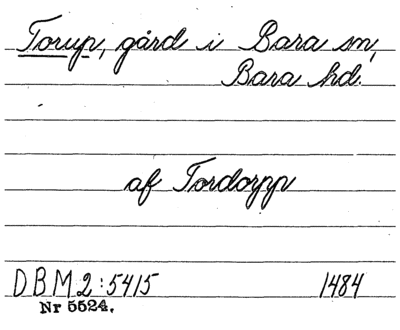 Torup, gård i Bara sn,
Bara hd.
af Tordorpp
DBM 2:5415 1484
Nr 5524.